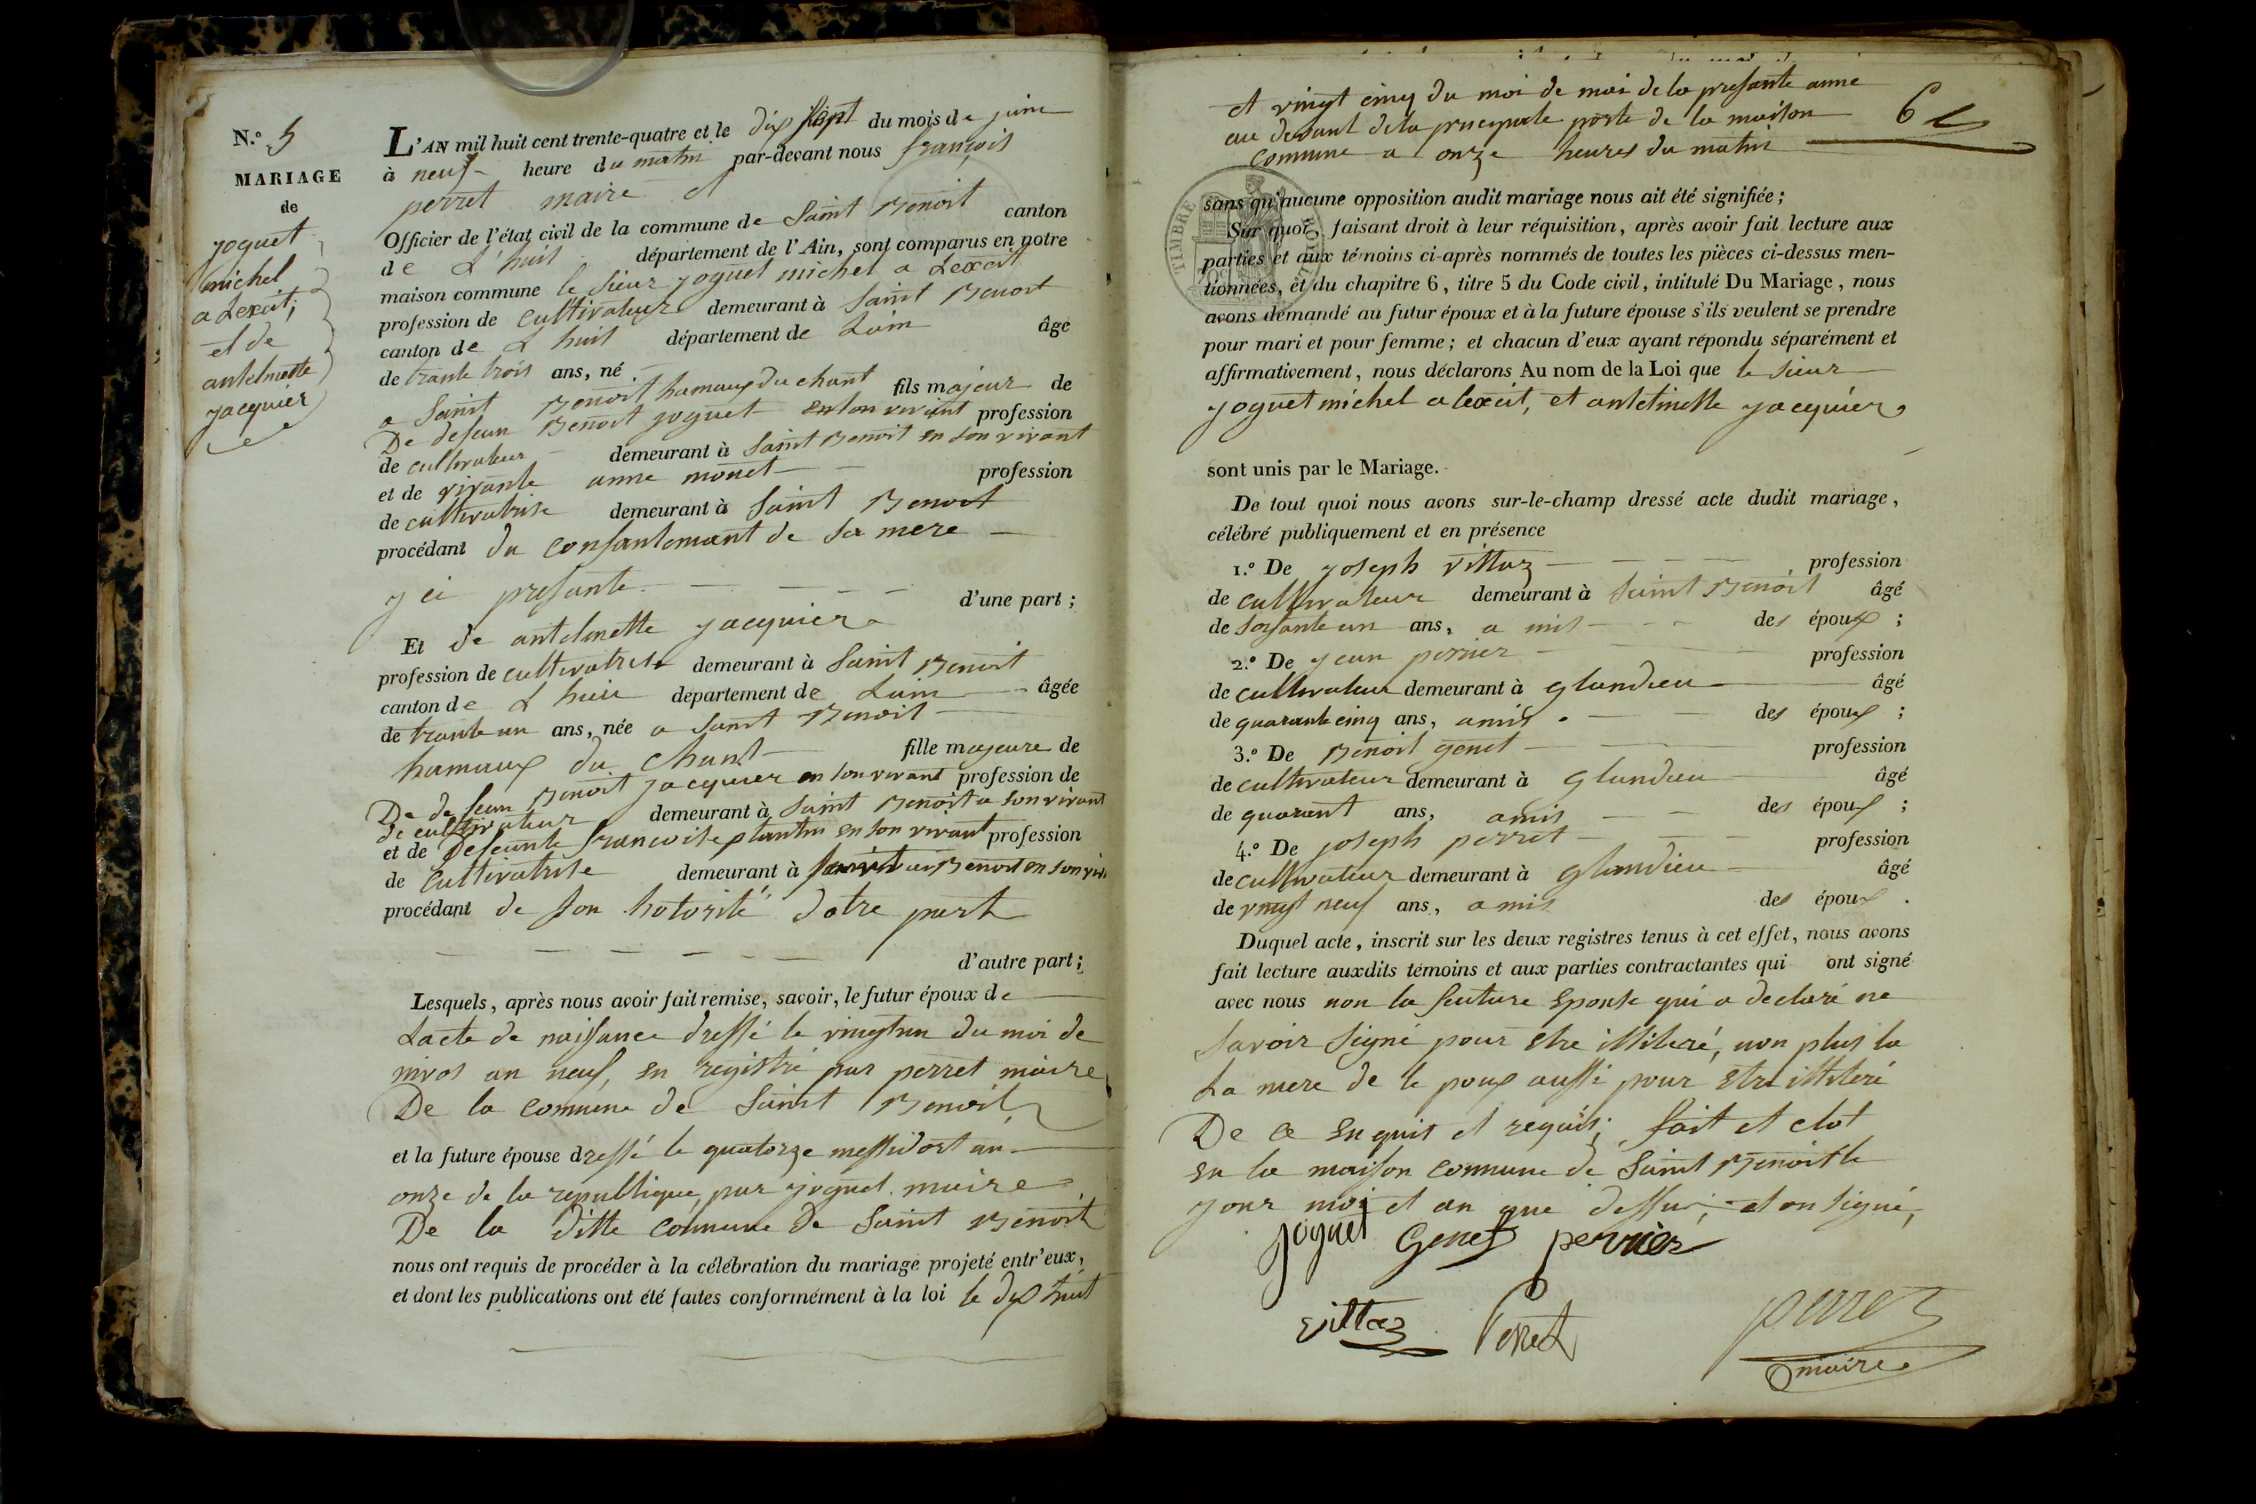 N.º 5
MARIAGE
de
joguet
michel
alexcit,
et de
antelmette
jacquier
L'AN mil huit cent trente-quatre et le dix sept du mois de juin
à neuf heure du matin par-devant nous françois
perret maire et
Officier de l'état civil de la commune de Saint Benoit canton
de L'huis département de l'Ain, sont comparus en notre
maison commune le sieur joguet michel alexcit
profession de cultivateur demeurant à Saint Benoit
canton de L huis département de Lain âge
de trante trois ans, né
a Saint Benoit hamaux du chant fils majeur de
De defeun Benoit joguet en son vivant profession
de cultivateur demeurant à Saint Benoit en son vivant
et de vivante anne monet profession
de cultivatrise demeurant à Saint Benoit
procédant du consantemant de sa mere
y ci presante d'une part ;
Et de antelmette jacquier
profession de cultivatrise demeurant à Saint Benoit
canton de L huis département de Lain âgée
de trante un ans, née a Saint Benoit
hamaux du chant fille majeure de
De defeun Benoit jacquier en son vivant profession de
de cultivateur demeurant à Saint Benoit a son vivant
et de defeunte francoise plantin en son vivant profession
de cultivatrise demeurant à Benoit en son viv
procédant de son hotorité dotre part
d'autre part ;
Lesquels, après nous avoir fait remise, savoir, le futur époux de
Lacte de naissance dressé le vingtun du moi de
nivos an neuf, en registré par perret maire
De la commune de Saint Benoit
et la future épouse dressé le quatorze messidort an
onze de la republique, par joguet maire
De la ditte commune de Saint Benoit
nous ont requis de procéder à la célébration du mariage projeté entr'eux,
et dont les publications ont été faites conformément à la loi le dix huit
et vingt cinq du moi de mai de la presante anne
au devant de la principale porte de la maison
commune a onze heures du matin
6
TIMBRE ROYAL
sans qu'aucune opposition audit mariage nous ait été signifiée ;
Sur quoi, faisant droit à leur réquisition, après avoir fait lecture aux
parties et aux témoins ci-après nommés de toutes les pièces ci-dessus men-
tionnées, et du chapitre 6, titre 5 du Code civil, intitulé Du Mariage, nous
avons demandé au futur époux et à la future épouse s'ils veulent se prendre
pour mari et pour femme ; et chacun d'eux ayant répondu séparément et
affirmativement, nous déclarons Au nom de la Loi que le sieur
joguet michel alexcit, et antelmette jacquier,
sont unis par le Mariage.
De tout quoi nous avons sur-le-champ dressé acte dudit mariage,
célébré publiquement et en présence
1.º De joseph vittoz profession
de cultivateur demeurant à Saint Benoit âgé
de soisante un ans, a mis des époux ;
2.º De jean perrier profession
de cultivateur demeurant à glandieu âgé
de quarante cinq ans, amis des époux ;
3.º De Benoit genet profession
de cultivateur demeurant à glandieu âgé
de quarant ans, amis des époux ;
4.º De joseph perret profession
de cultivateur demeurant à glandieu âgé
de vingt neuf ans, amis des époux .
Duquel acte, inscrit sur les deux registres tenus à cet effet, nous avons
fait lecture auxdits témoins et aux parties contractantes qui ont signé
avec nous non la feuture eponse qui a declaré ne
savoir signé pour etre illiteré, non plus la
La mere de le poux aussi pour etre illiteré
De ce enquit et requis; fait et clot
en la maison commune de Saint Benoit le
jour moi et an que dessus; et on signé,
joguet genet perrier
vittoz Perret perret
maire